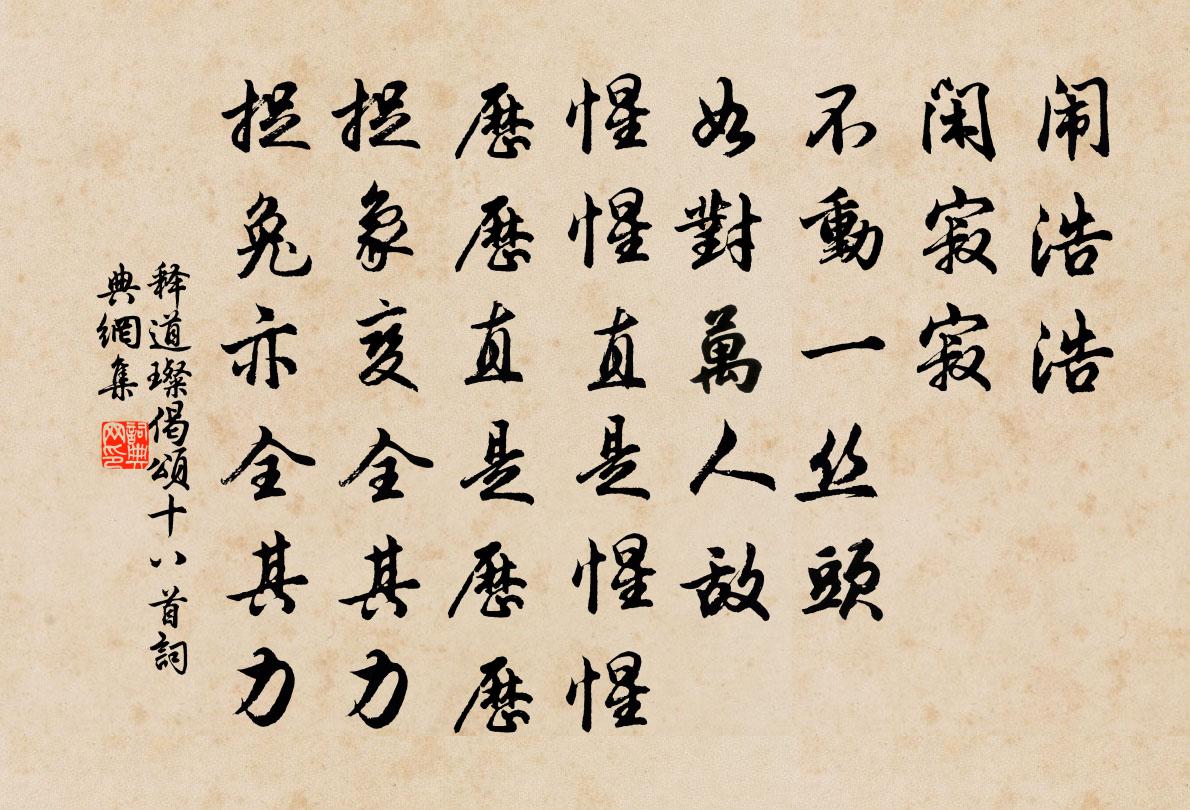 闹浩浩
闲寂寂
不動一丝頭
如對萬人敌
惺惺直是惺惺
歷歷直是歷歷
捉象变全其力
捉兔亦全其力
释道璨偈頌十八首詞
典網集
詞典
网印